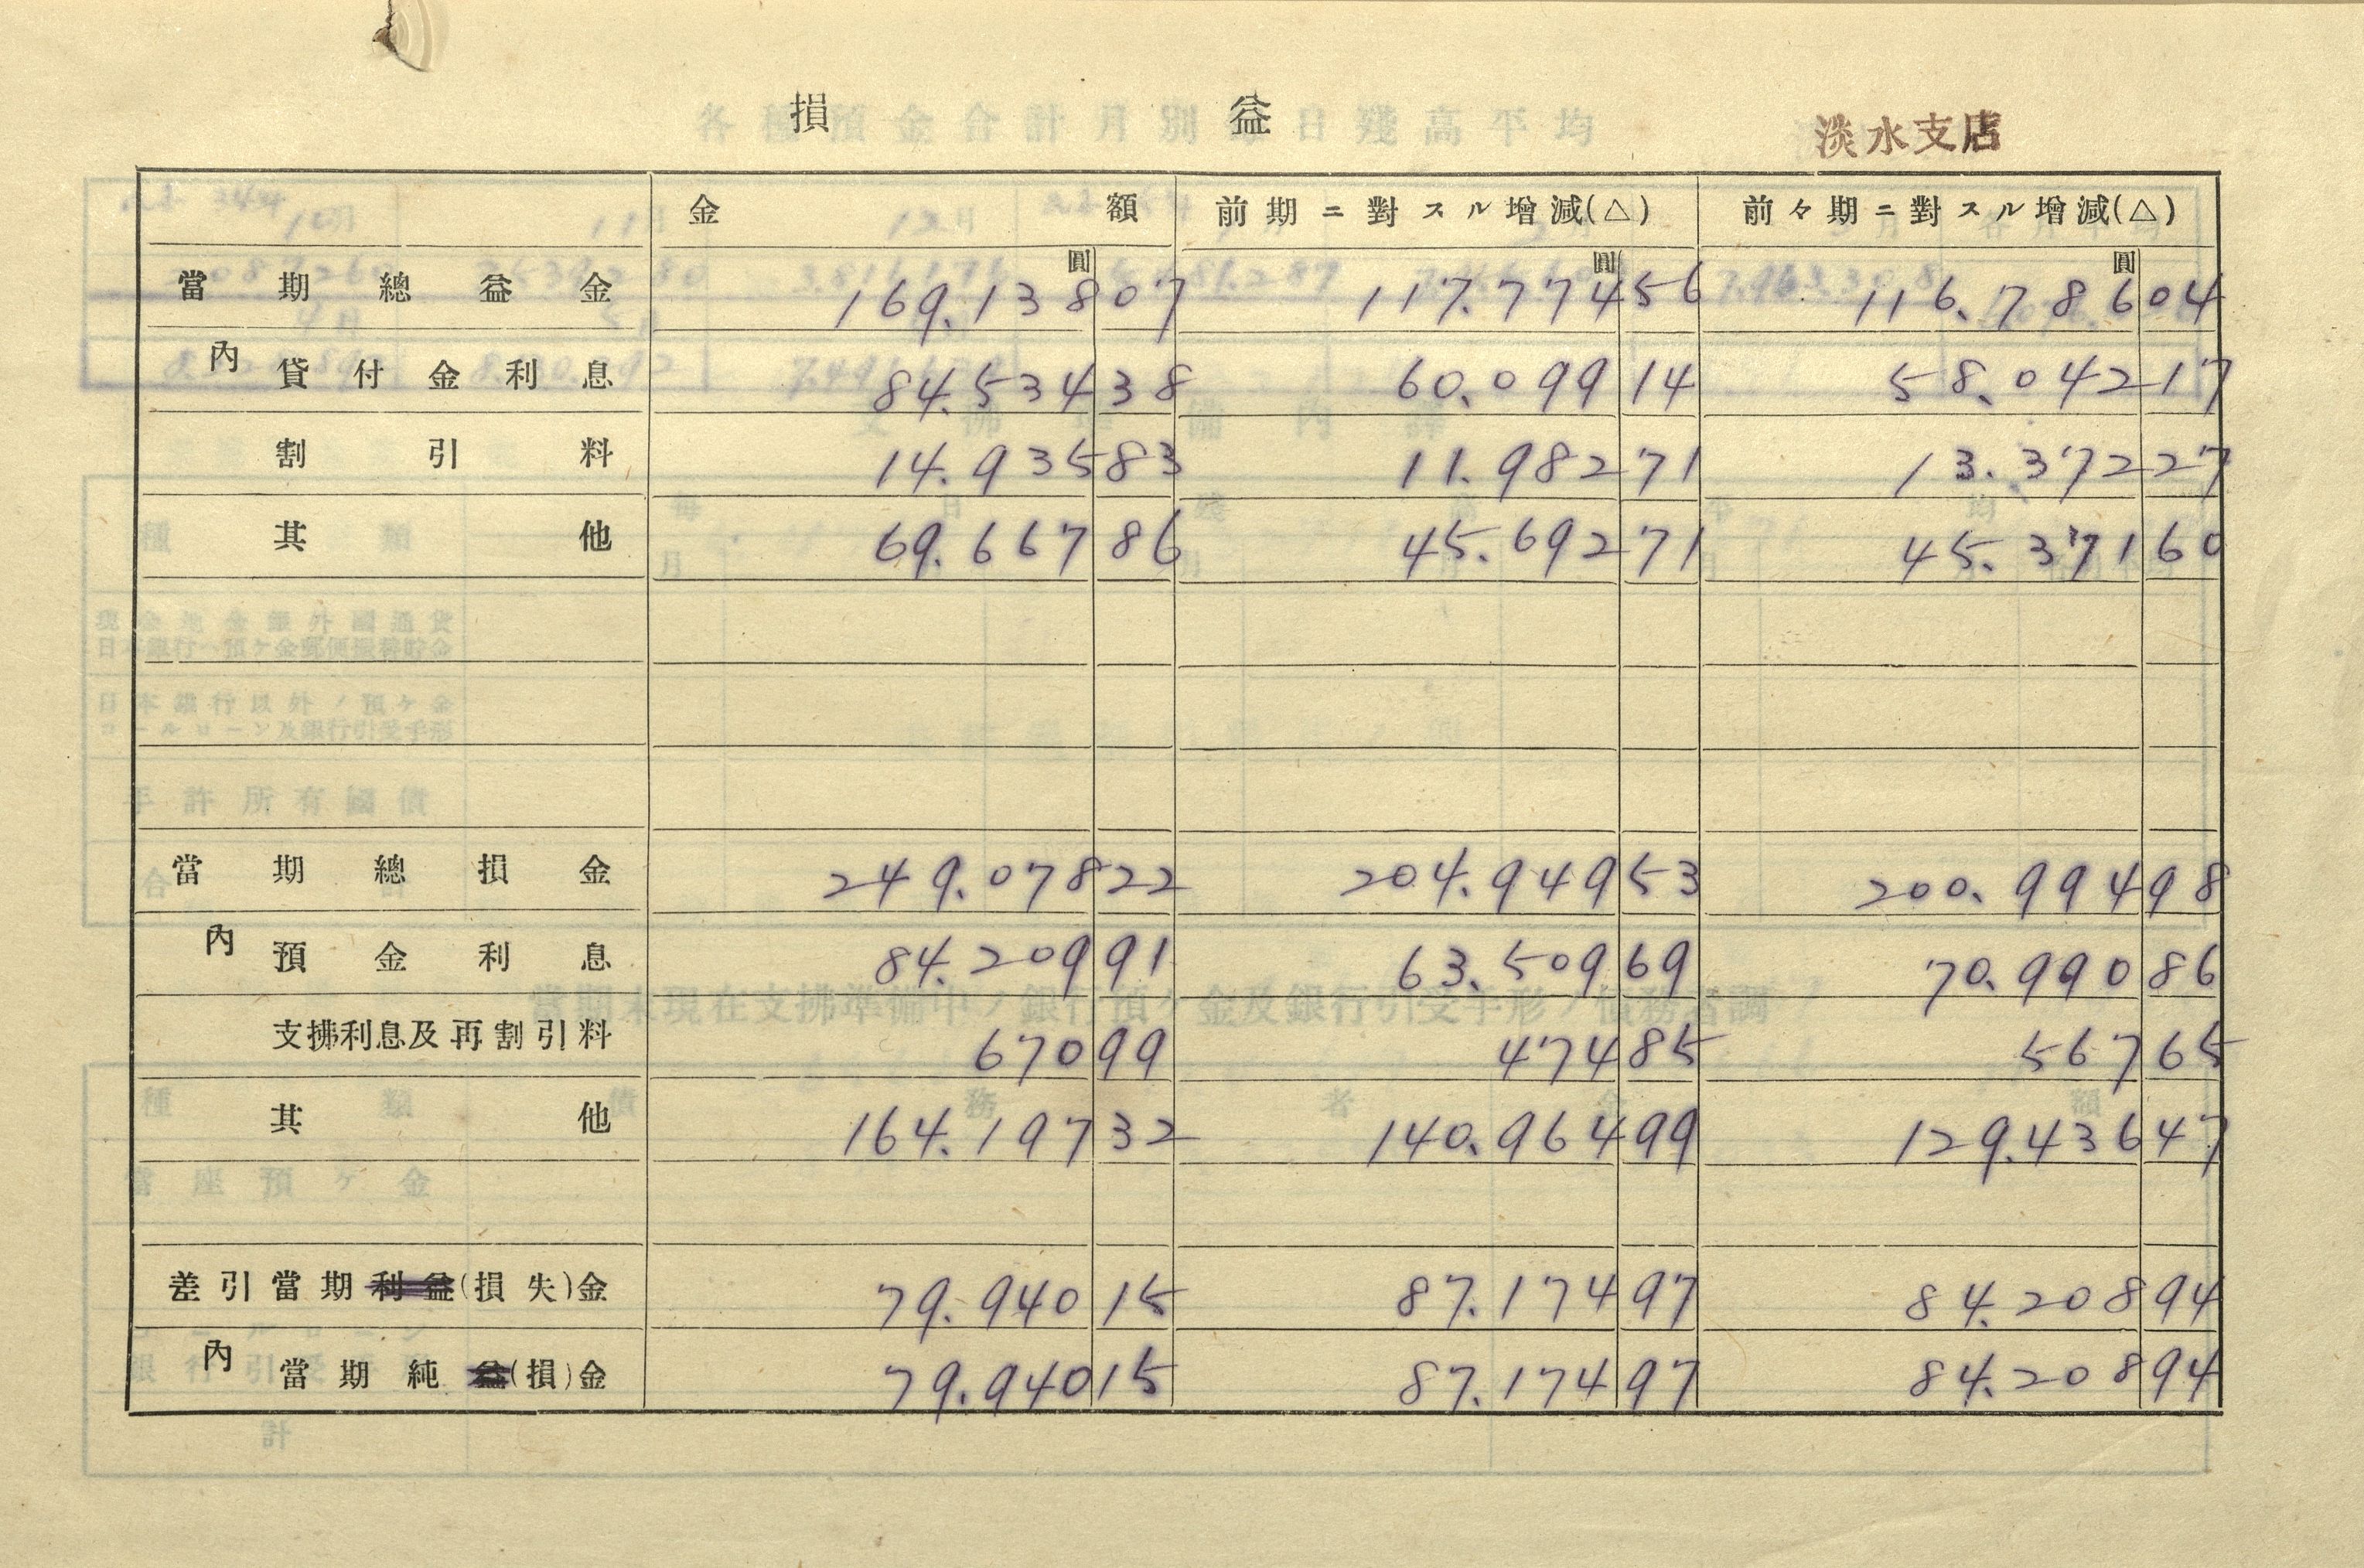 損益
淡水支店
金額 前期ニ對スル增減(△) 前々期ニ對スル增減(△)
圓 圓 圓
當期總益金 169.138 07 117.774 56 116.786 04
內 貸付金利息 84.534 38 60.099 14 58.042 17
割引料 14.935 83 11.982 71 13.372 27
其他 69.667 86 45.692 71 45.371 60
當期總損金 249.078 22 204.949 53 200.994 98
內 預金利息 84.209 91 63.509 69 70.990 86
支拂利息及再割引料 670 99 474 85 567 65
其他 164.197 32 140.964 99 129.436 47
差引當期利益(損失)金 79.940 15 87.174 97 84.208 94
內 當期純益(損)金 79.940 15 87.174 97 84.208 94